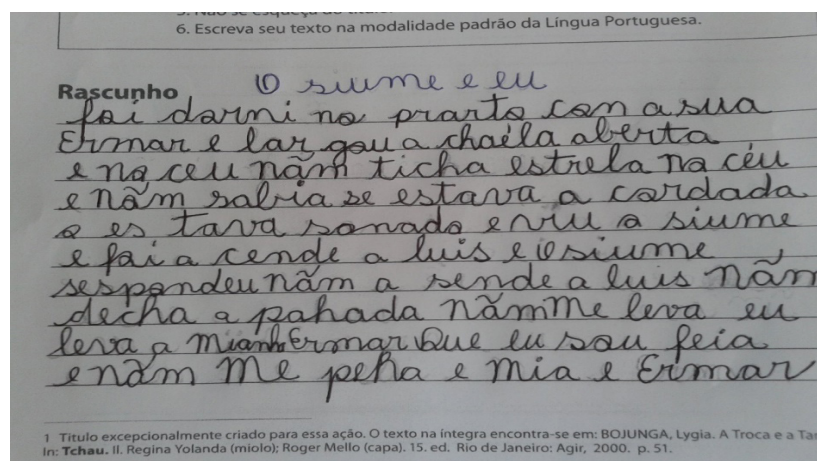 6. Escreva seu texto na modalidade padrão da Língua Portuguesa.
Rascunho O siume e eu
foi darmi no prarto com a sua
Ermar e lar gou a chaéla aberta
e no ceu nãm ticha estrela na céu
e nãm salria se estava a cordada
o es tava sonado e viu o siume
e foi a cende a luis e o siume
sespondeu nãm a sende a luis nãm
decha a pahada nãm me leva eu
leva a mianh Ermar Que eu sou feia
e nãm me peha e mia e Ermar
1 Título excepcionalmente criado para essa ação. O texto na íntegra encontra-se em: BOJUNGA, Lygia. A Troca e a
In: Tchau. Il. Regina Yolanda (miolo); Roger Mello (capa). 15. ed. Rio de Janeiro: Agir, 2000. p. 51.